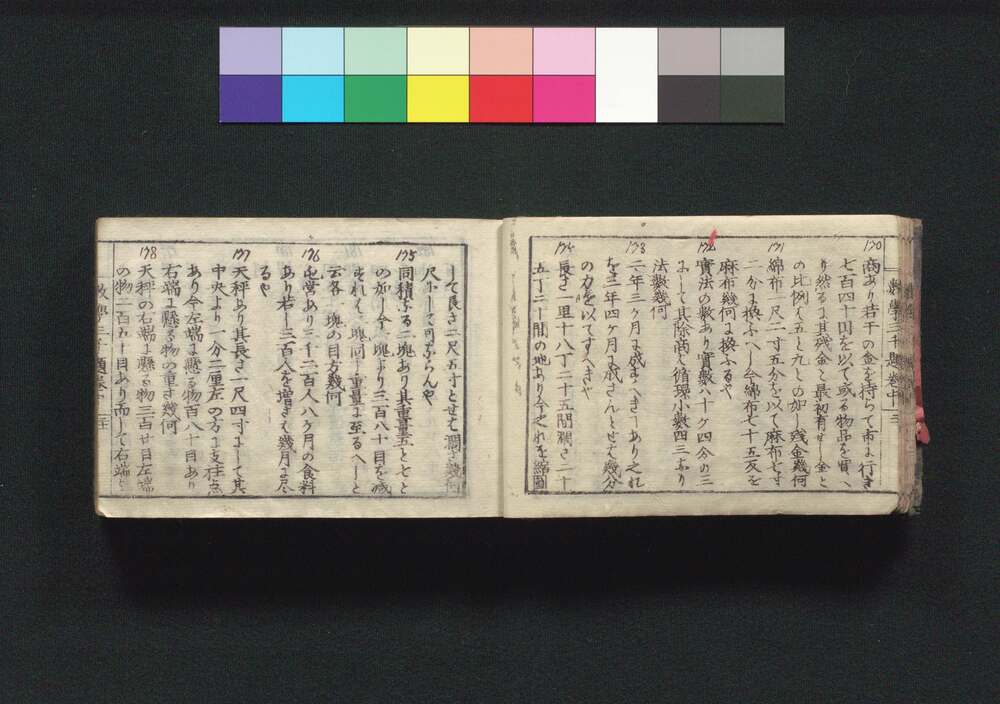 170
商あり若干の金を持らて市に行き
七百四十円を以て或る物品を買ひ
然るに其残金と最初有せし金と
の比例く五と九との如し残金幾何
171
綿布一尺二寸五分を以て麻布七寸
二分に換ふへし今綿布七十五反を
麻布幾何に換ふるや
172
實法の数あり實数八十ケ四分の三
にして其除商く循環小数四三なり
法数幾何
173
二年三ヶ月に成すへきあり之れ
を三年四ヶ月に成さんとせは幾分
の力を以てすへきや
174
長さ一里十八丁二十五間濶さ二十
五丁二十間の地あり今之れを縮圖
して長さ二尺五寸とせは濶さ幾何
尺にして可ならんや
175
同積なる二塊あり其重量五と七と
の如し今 塊より三百八十目を減
すれは 塊同一重量に至るへしと
云各一塊の目方幾何
176
屯営あり三千二百人八ヶ月の食料
あり若し三百人を増さは幾月に尽
るや
177
天秤あり其長さ一尺四寸にして其
中央より一分二厘左の方に支柱点
あり今左端に懸る物百八十目あり
右端に懸る物の重さ幾何
178
天秤の右端に懸る物三百廿目左端
の物二百五十目あり而して右端
数學三千題巻中